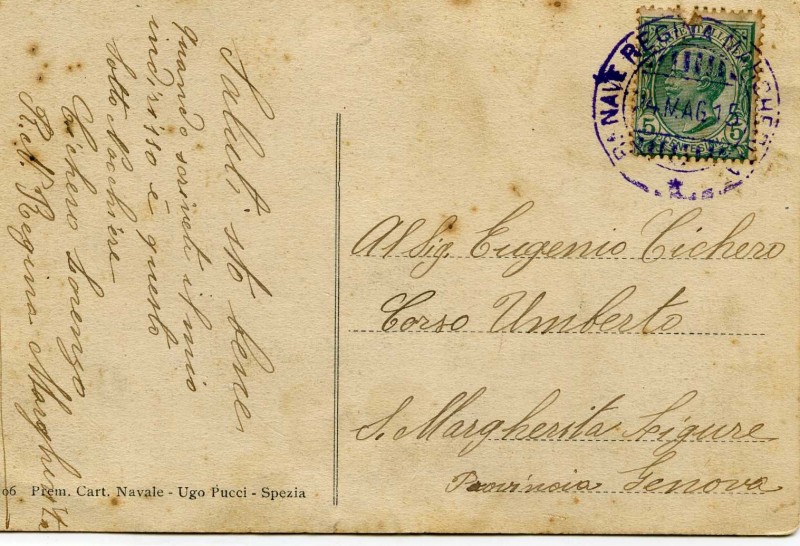 Saluti sto bene
quando scriveti il mio
indirisso è questo
Sotto Nocchiere
Cichero Lorenzo
R. N. Regina Margherita
R. NAVE REGINA MARGHERITA
4 MAG 15
5 5
Al Sig. Eugenio Cichero
Corso Umberto
S. Margherita Ligure
Provincia Genova
06 Prem. Cart. Navale - Ugo Pucci - Spezia